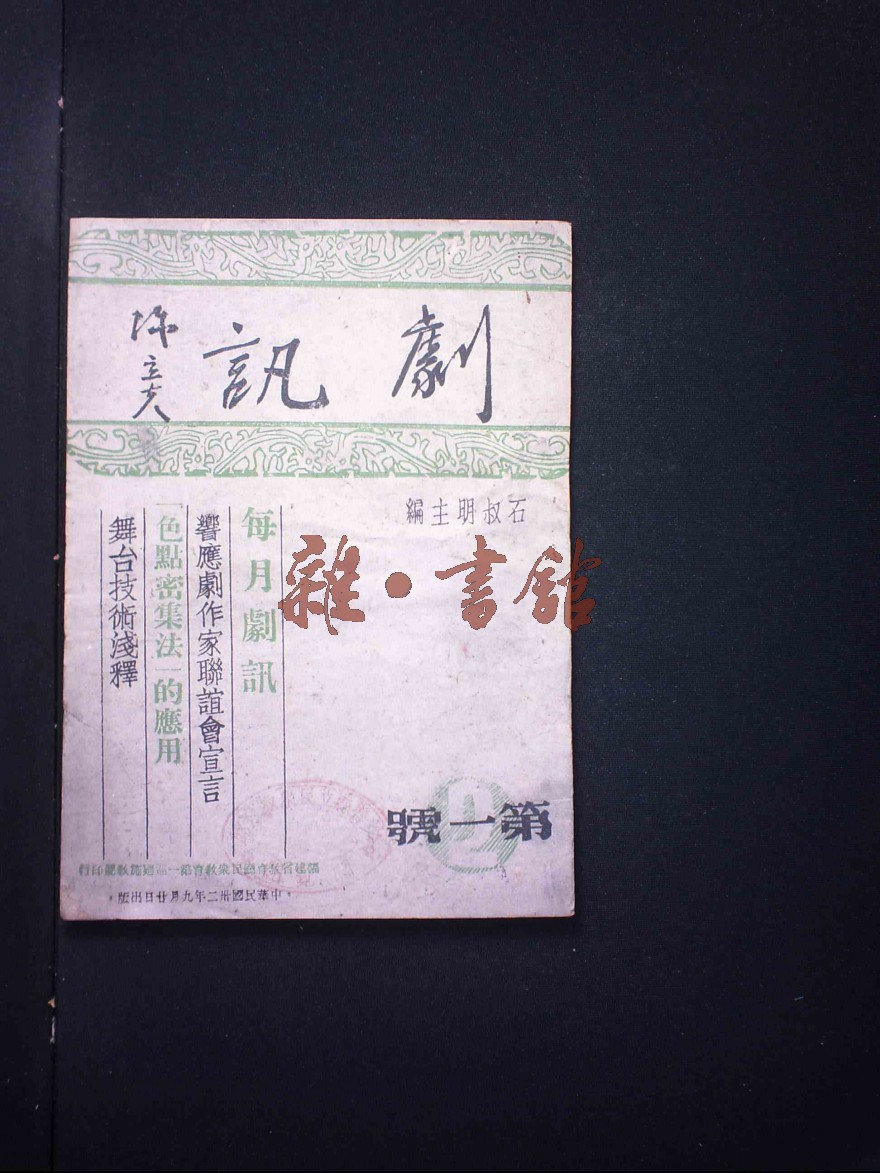 劇訊
陳立夫
石叔明主編
每月劇訊
響應劇作家聯誼會宣言
「色點密集法」的應用
舞台技術淺釋
雜·書館
2
第一號
中華民國卅二年九月廿日出版